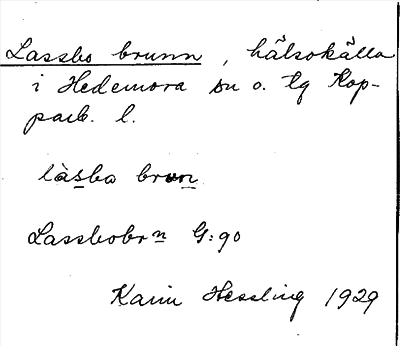 Lassbo brunn, hälsokälla
i Hedemora sn o. tg Kop-
parb. l.
làsbo brun
Lassbobrn G:90
Karin Hessling 1929